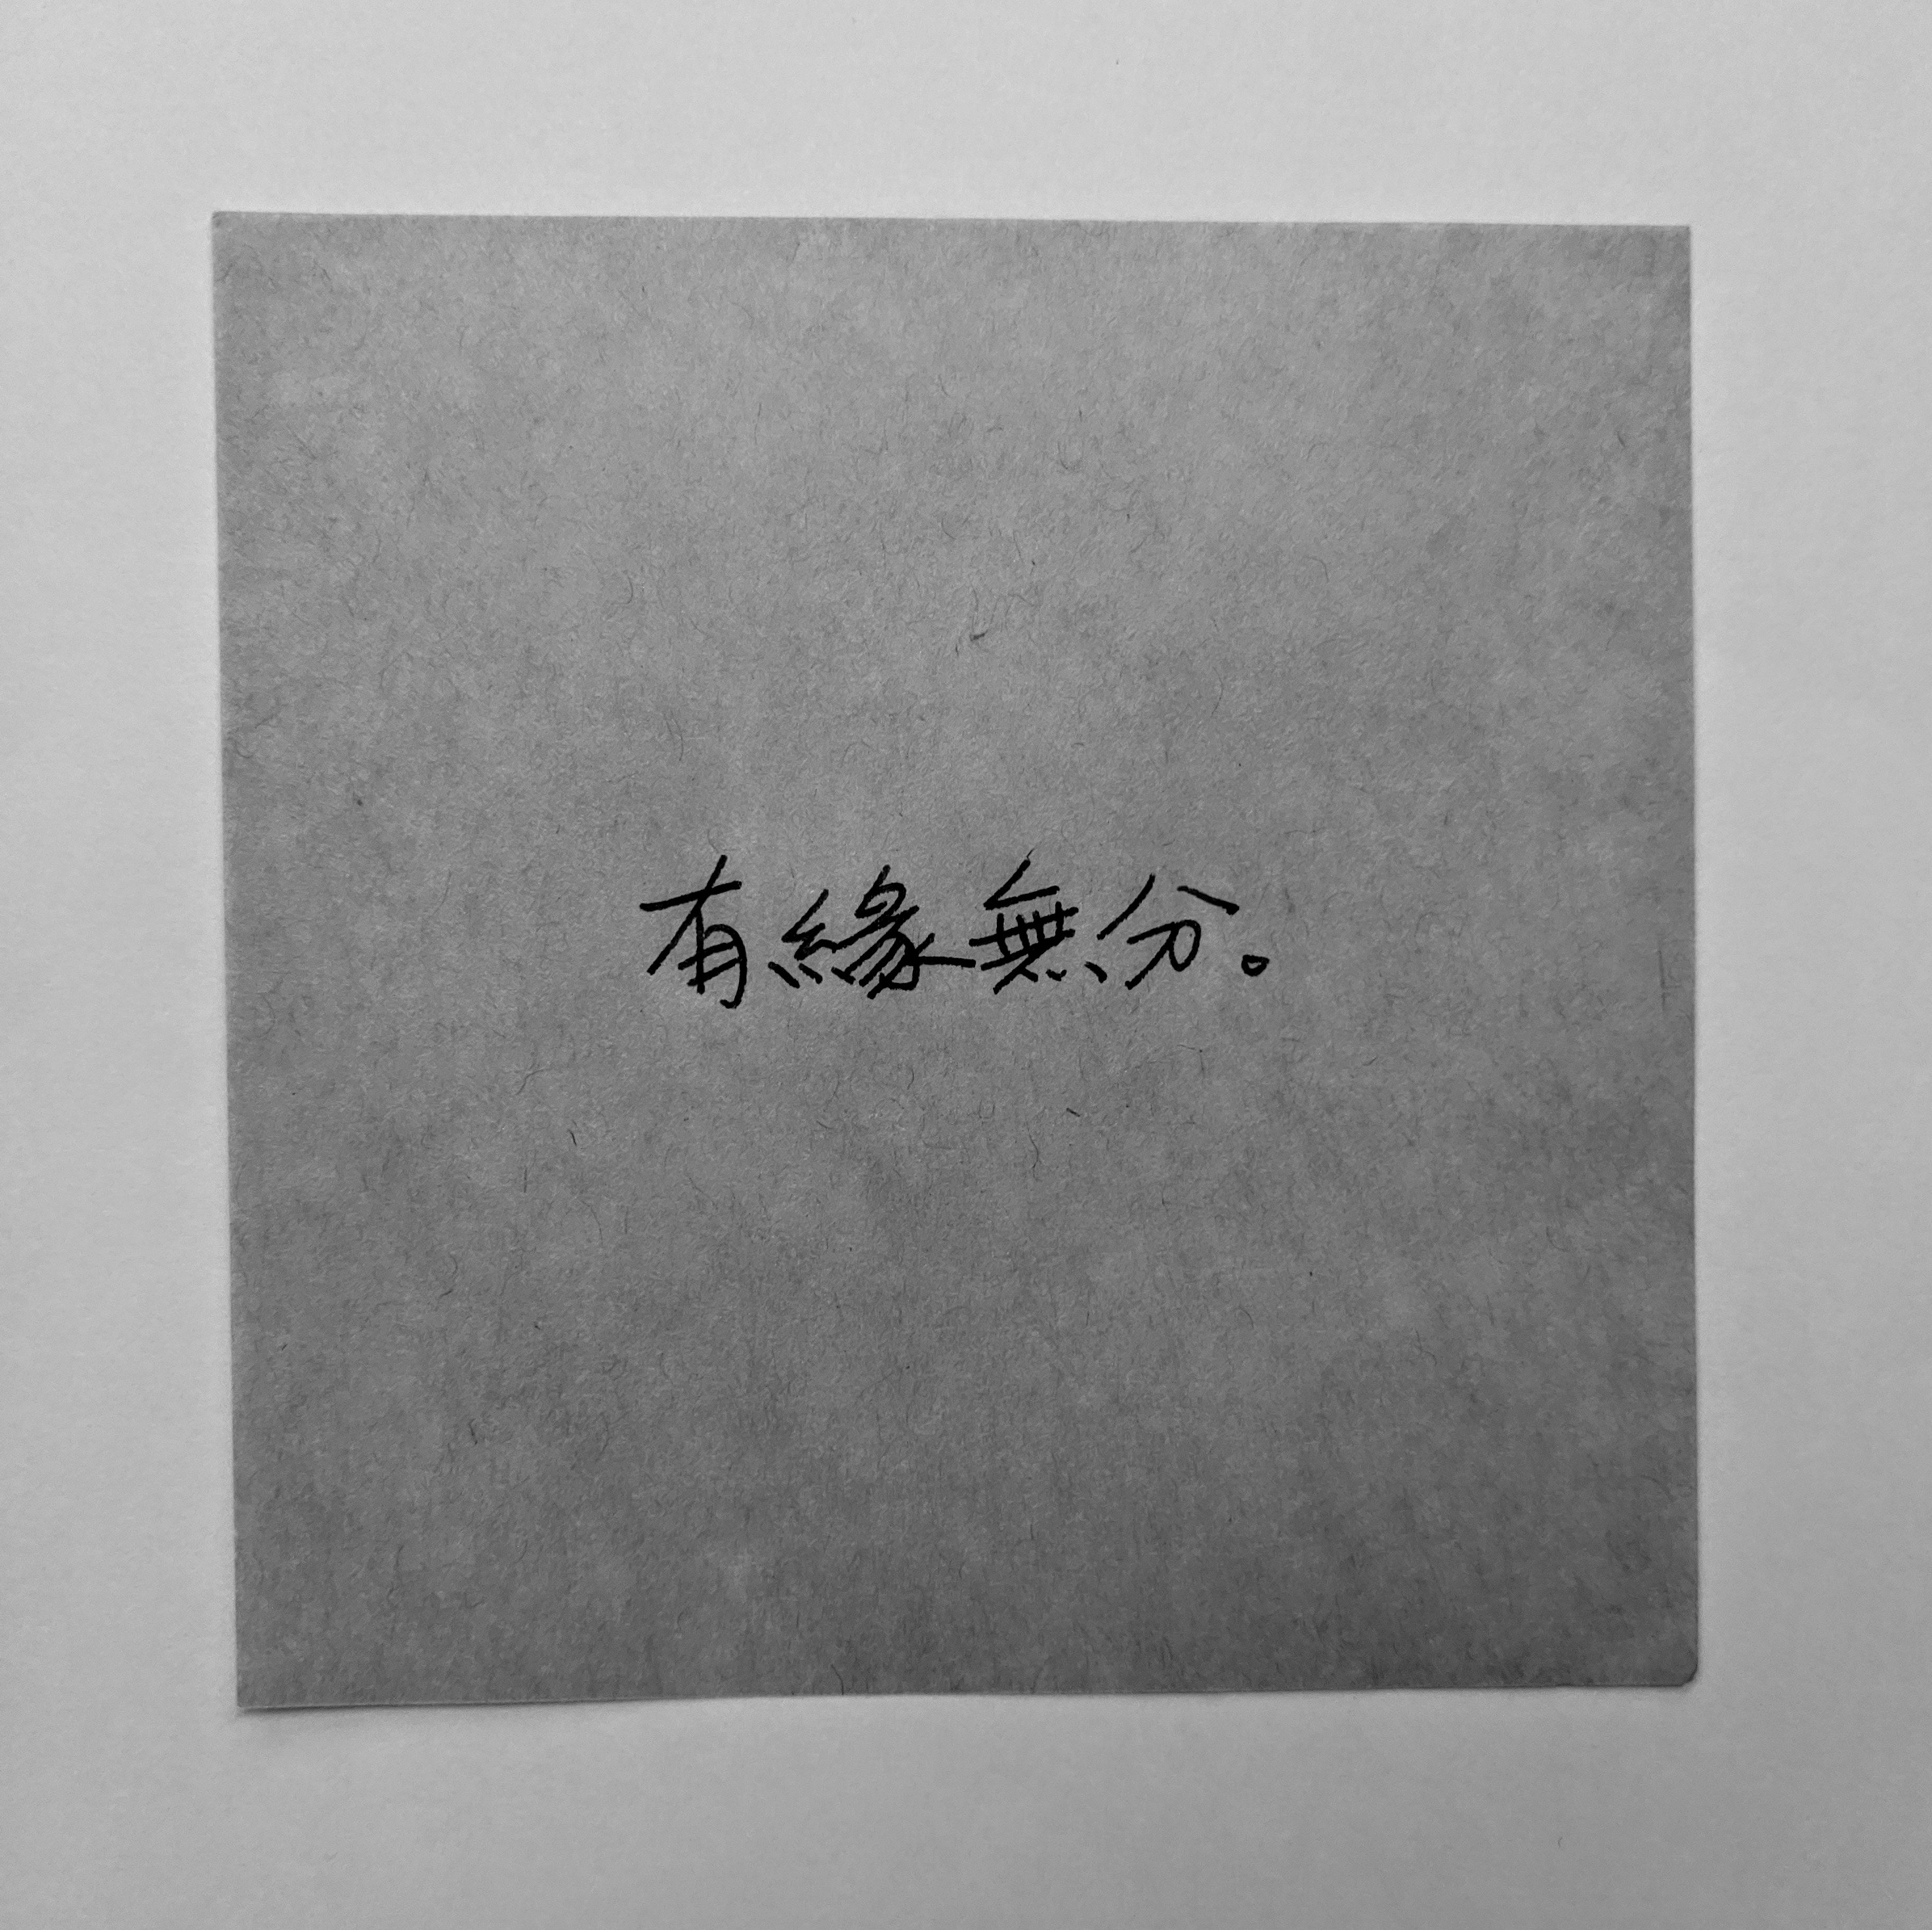 有緣無分。